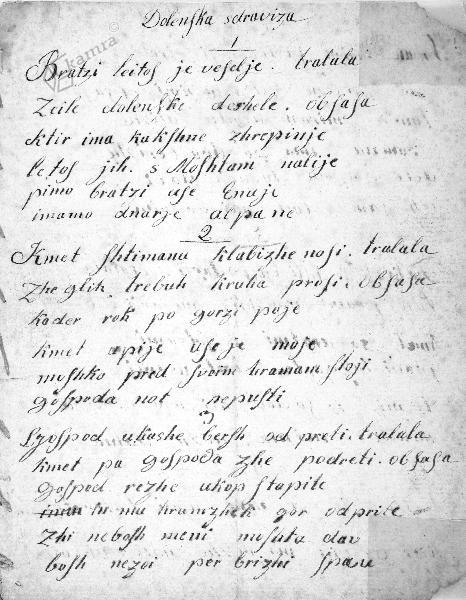 kamra
Dolenſka sdraviza
1
Bratzi leitos je veſelje. tralala
Zeile dolenſke deshele. obſaſa
ktir ima kakshne zhrepinje
letos jih. s Moshtam nalije
pimo bratzi uſe Enaje
imamo dnarje al pa ne
2
Kmet shtimanu klabizhe noſi. tralala
Zhe glih trebuh kruha proſi. obſaſa
kader rok po gorzi poje
kmet upije uſe je moje
moshko pred svoim hramam ſtoji
goſpoda not nepuſti
3
Goſpod ukashe bersh odpreti. tralala
kmet pa goſpoda zhe podreti. obſaſa
goſpod rezhe ukop ſtopite
tu mu hramzhek gor odprite
Zhi nebosh meni moſhta dav
bosh nezoi per brizhi ſpav